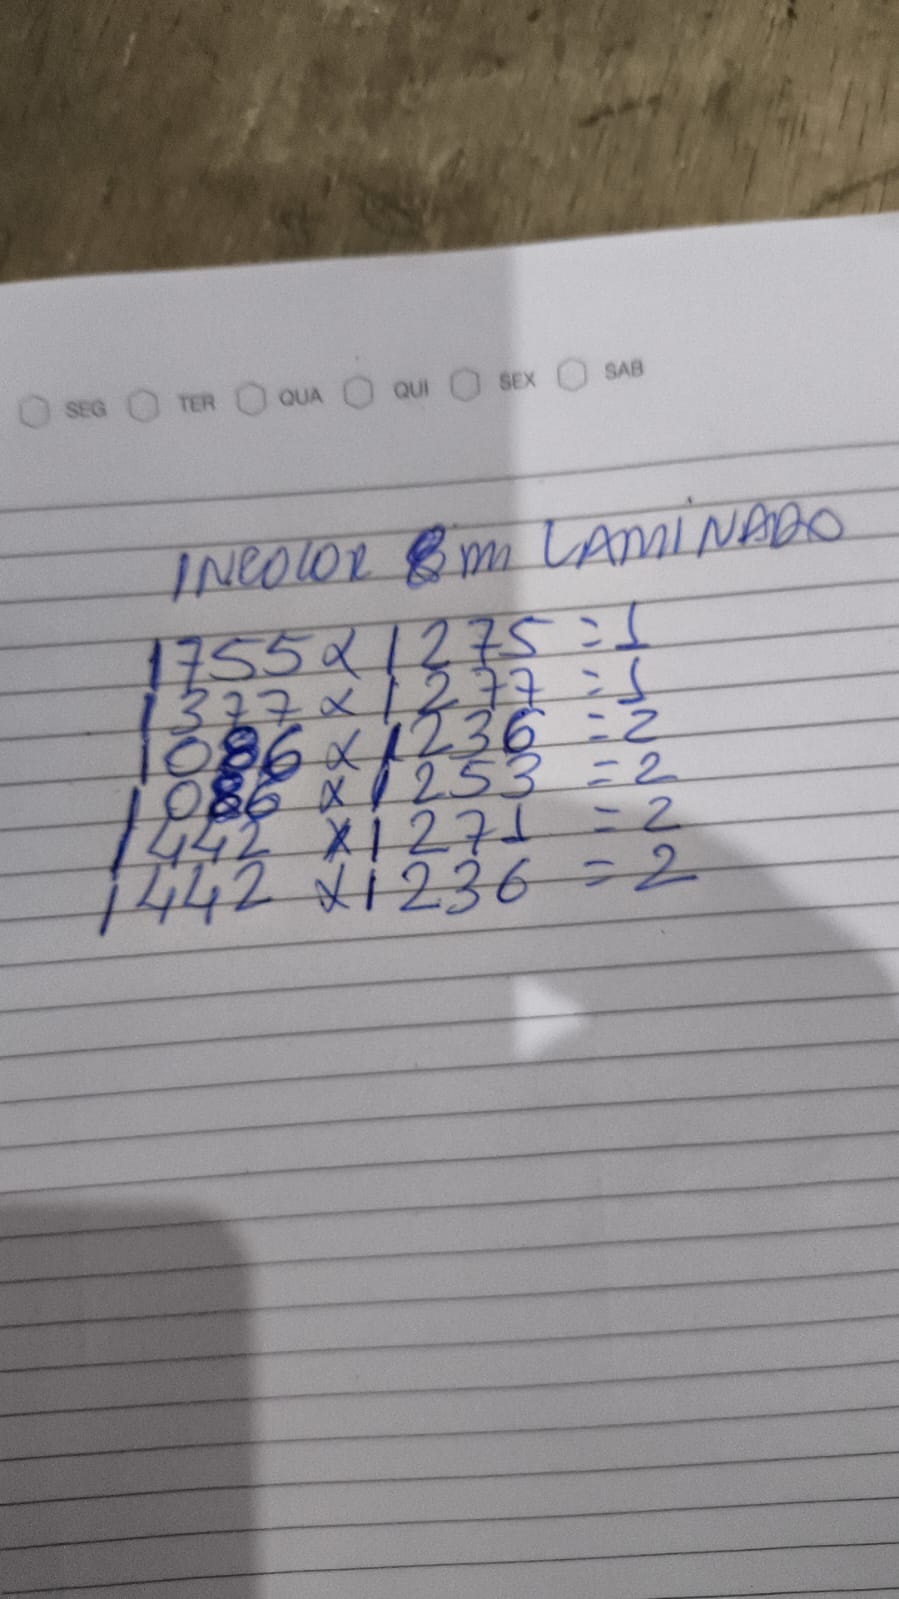 SEG TER QUA QUI SEX SAB
INCOLOR 8m LAMINADO
1755x1275=1
1377x1277=1
1086x1236=2
1086x1253=2
1442x1271=2
1442x1236=2